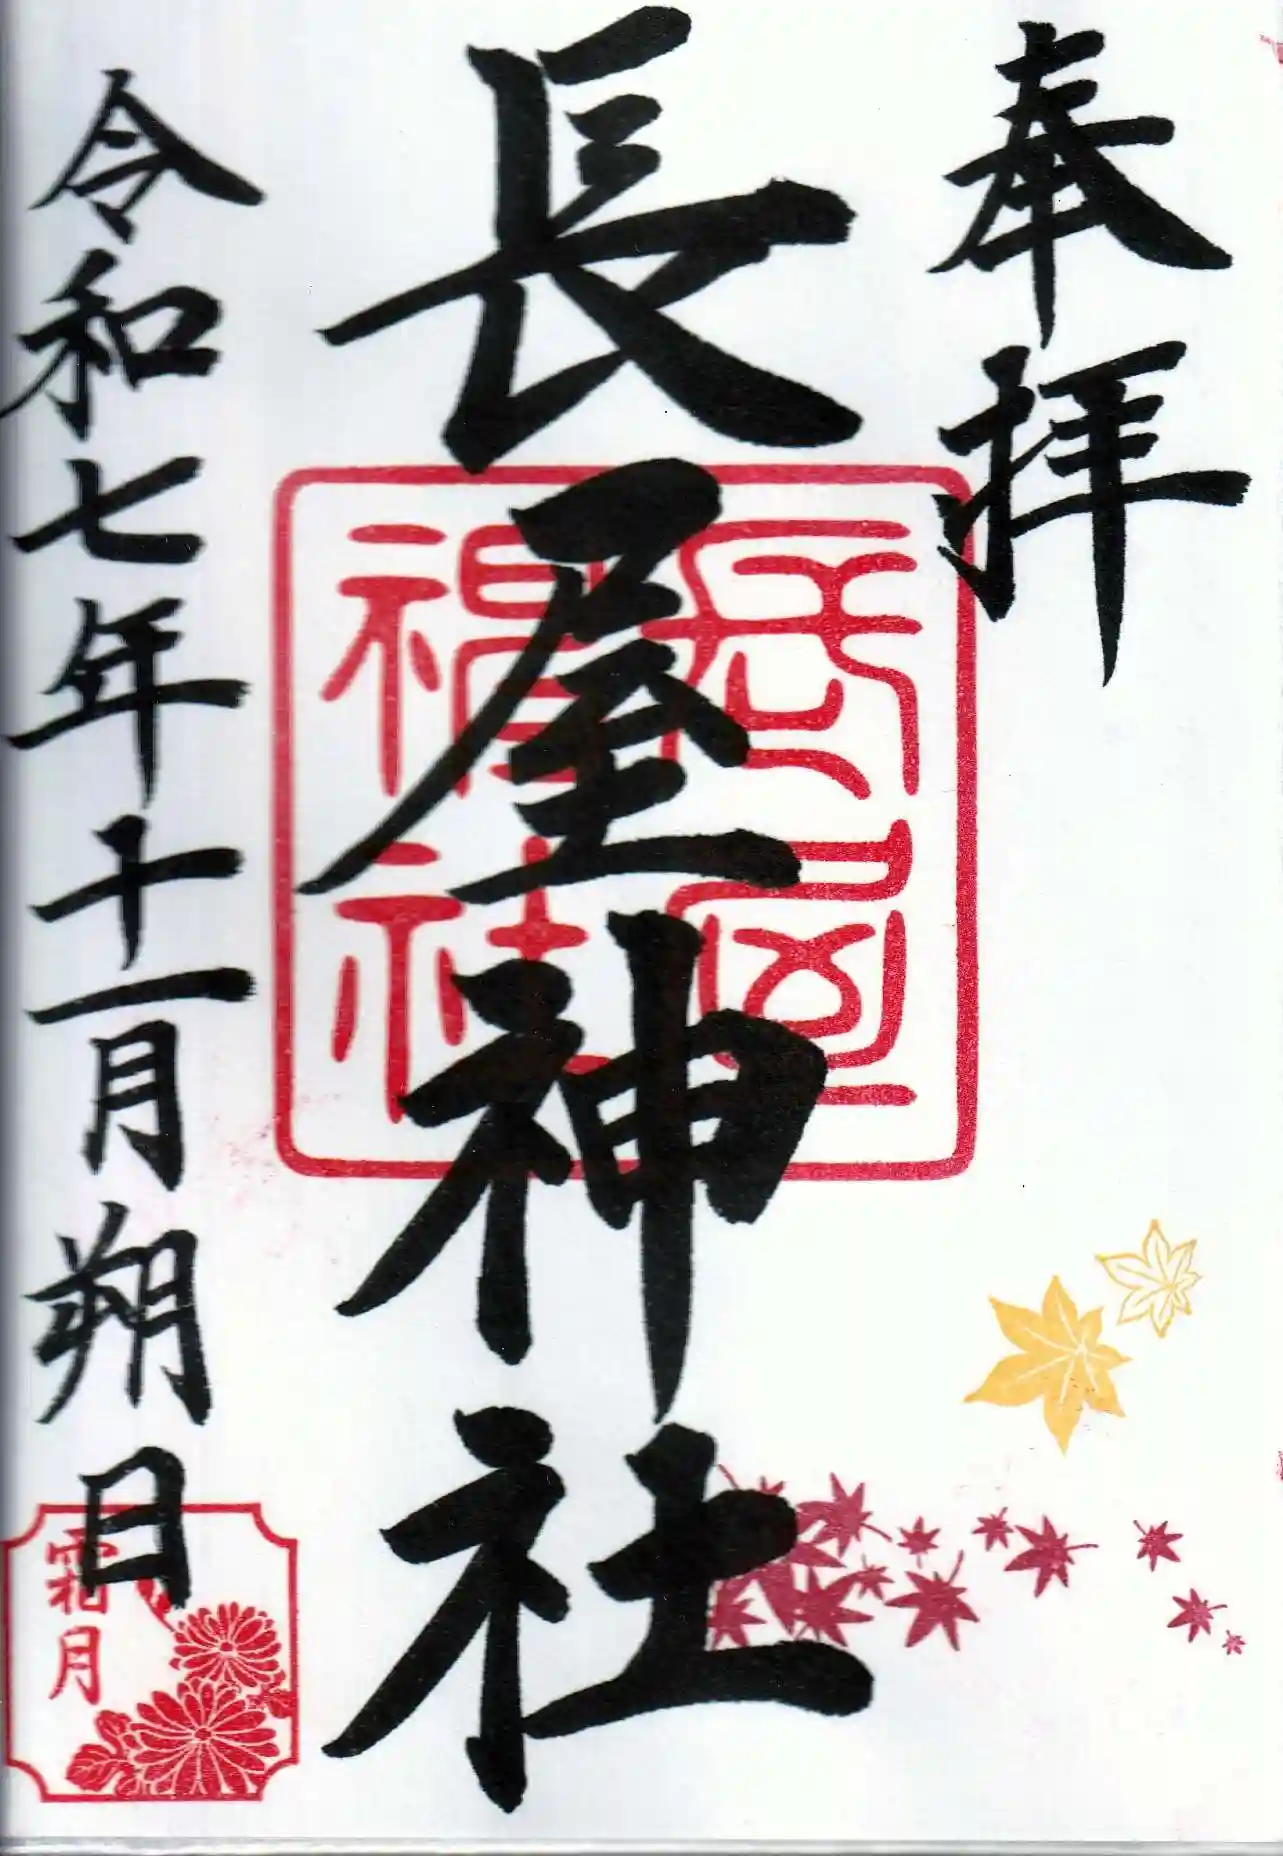 奉拝
長屋神社
長屋
神社
令和七年十一月朔日
霜月